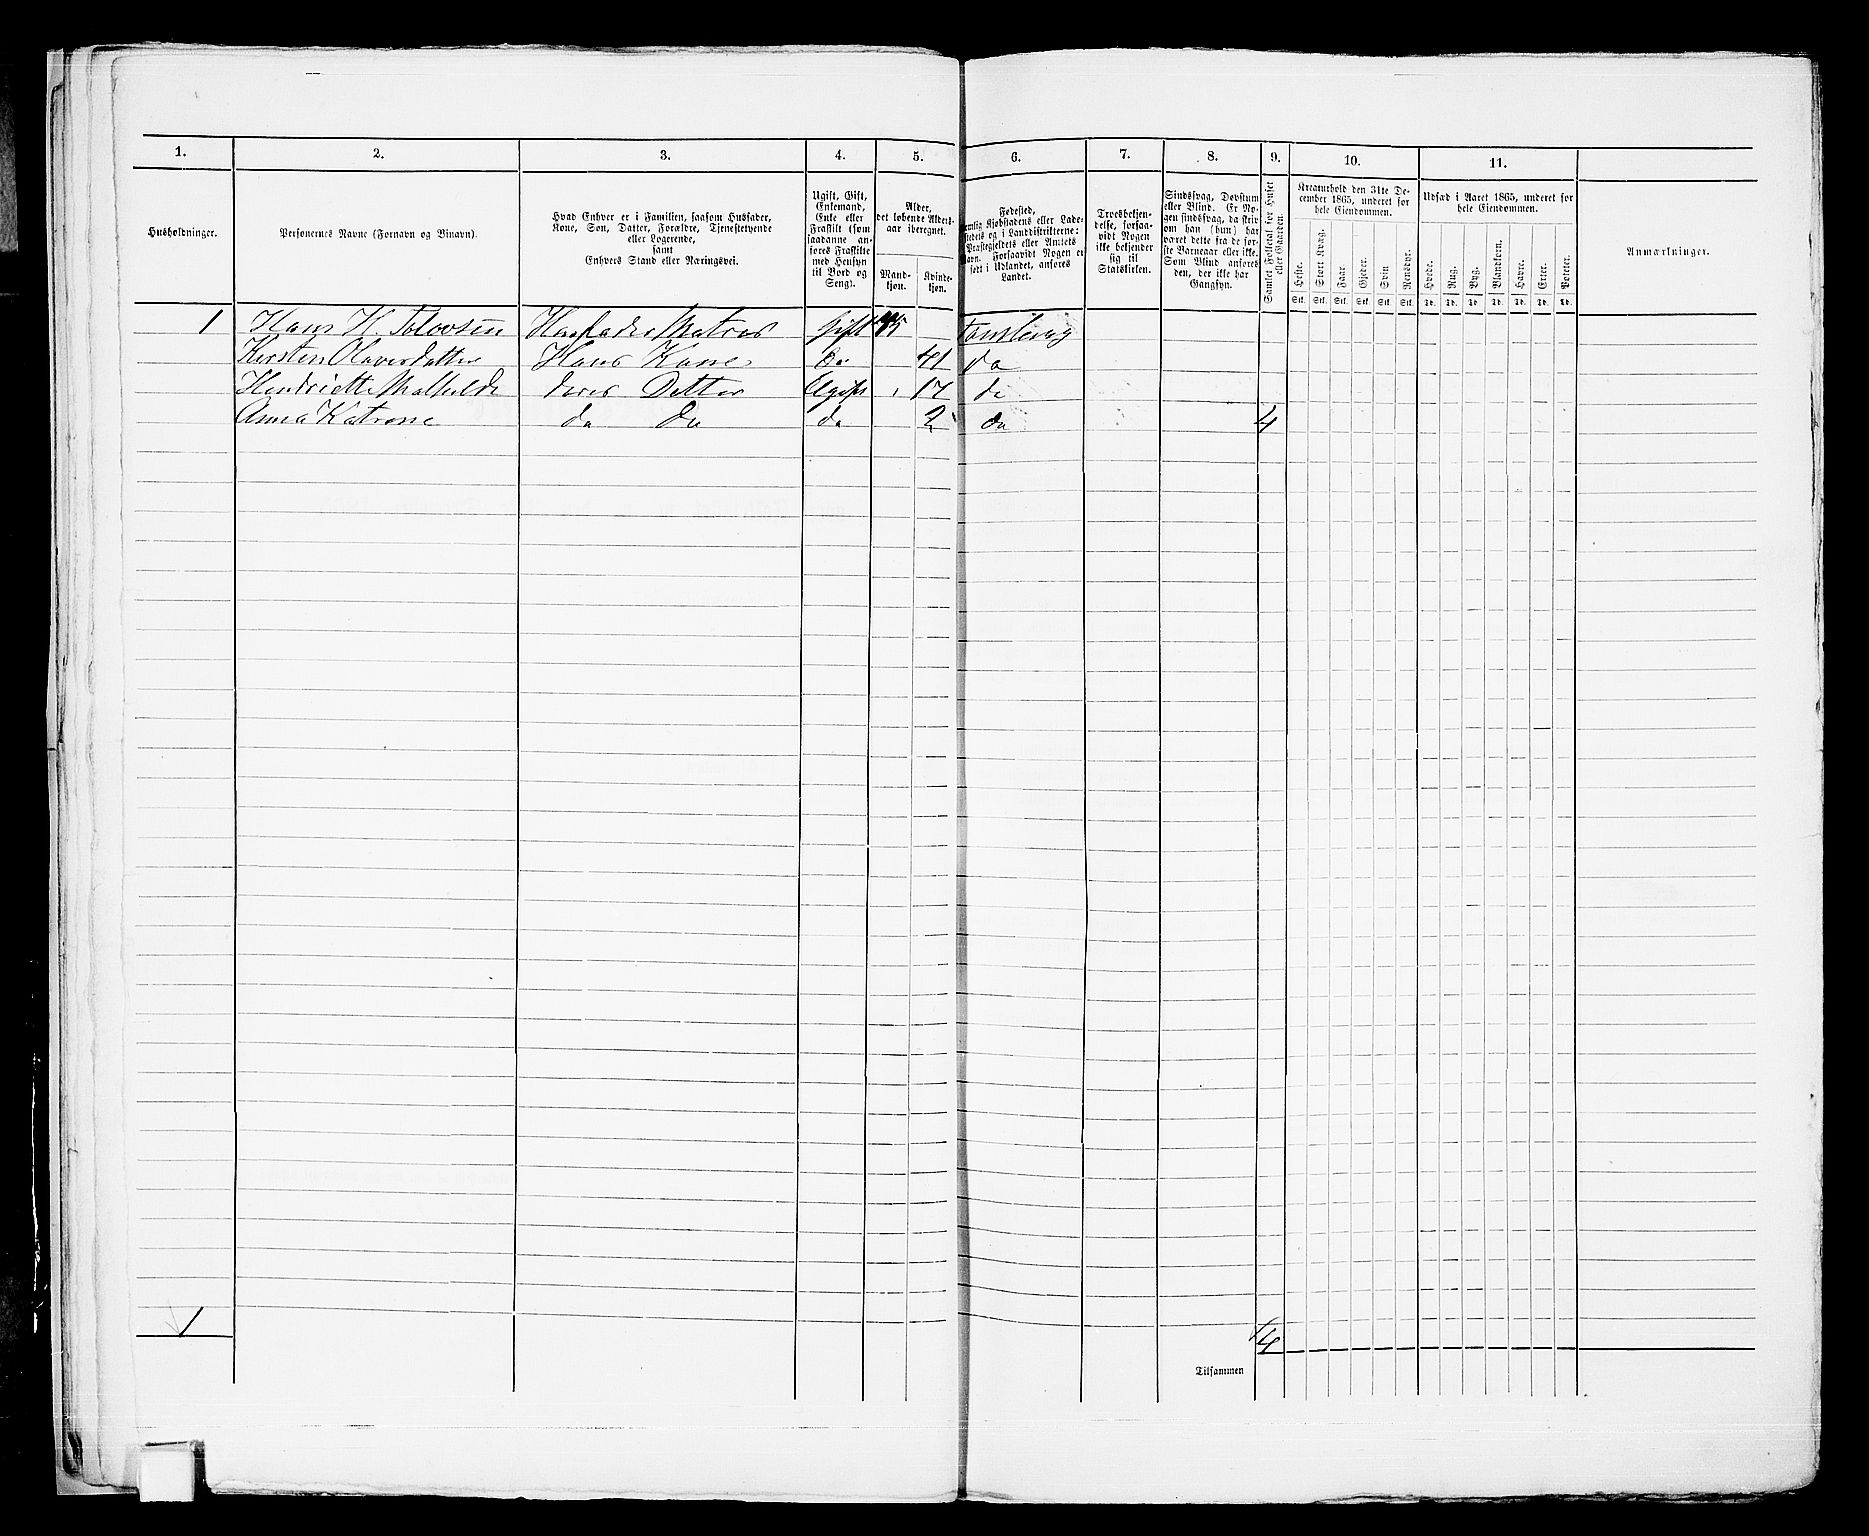 1. 2. 3. 4. 5. 6. 7. 8. 9. 10. 11.
Husholdninger.
Personernes Navne (Fornavn og Tilnavn).
Hvad Enhver er i Familien, saasom Husfader,
Kone, Søn, Datter, Forældre, Tjenestetyende
eller Logerende,
samt
Enhvers Stand eller Næringsvei.
Ugift, Gift,
Enkemand,
Enke eller
Fraskilt (som
saadanne an-
føres Fraskilte
med Hensyn
til Bord og
Seng).
Alder,
det løbende Alders-
aar iberegnet.
Mand-
kjøn.
Kvinde-
kjøn.
Fødested,
nemlig Kjøbstadens eller Lade-
stedets og i Landdistrikterne:
Præstegjeldets eller Amtets
Navn. Forsaavidt Nogen er
født i Udlandet, anføres
Landet.
Troesbekjen-
delse, forsaa-
vidt Nogen
ikke bekjender
sig til
Statskirken.
Sindssvag, Døvstum
eller Blind. Er No-
gen sindssvag, da skriv
om han (hun) har
været dette fra de før-
ste Barneaar eller ikke.
Som Blind anføres
den, der ikke har
Gangsyn.
Samlet Folketal for Huset
eller Gaarden.
Kreaturhold den 31te De-
cember 1865, underet for
hele Eiendommen.
Heste. Stort Kvæg. Faar. Gjeder. Svin Rensdyr.
Stk. Stk. Stk. Stk. Stk. Stk.
Udsæd i Aaret 1865, underet for
hele Eiendommen.
Hvede. Rug. Byg. Blandkorn. Havre. Erter. Poteter.
Td. Td. Td. Td. Td. Td. Td.
Anmærkninger.
1 Hans H. Tolovsen Husfader Matros Gift 45
Kirsten Olavesdatter Hans Kone do 41 do
Henriette Mathilde deres Detter Ugift 17 do
Anna Katrine do do do 2 do 4
1 4
Tilsammen